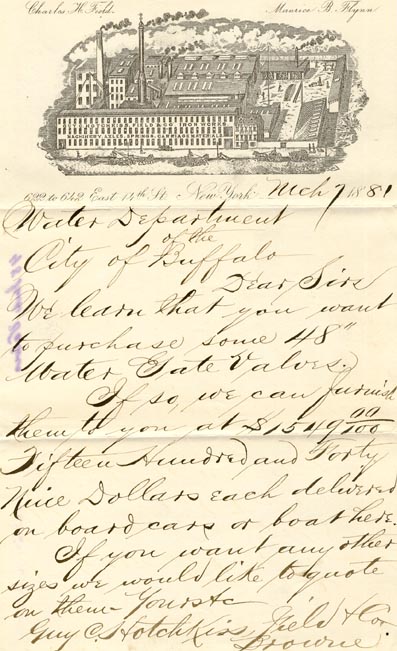 Charles H. Field. Maurice B. Flynn
622 to 642 East 14th St. New York. Mch 7 1881
Water Department
of the
City of Buffalo
Dear Sirs
We learn that you want
to purchase some 48"
Water Gate Valves.
If so, we can furnish
them to you at $1549 00/100
Fifteen Hundred and Forty
Nine Dollars each delivered
on board cars or boat here.
If you want any other
sizes we would like to quote
on them - Yours &c
Guy C. Hotchkiss, Field & Co.
Browne